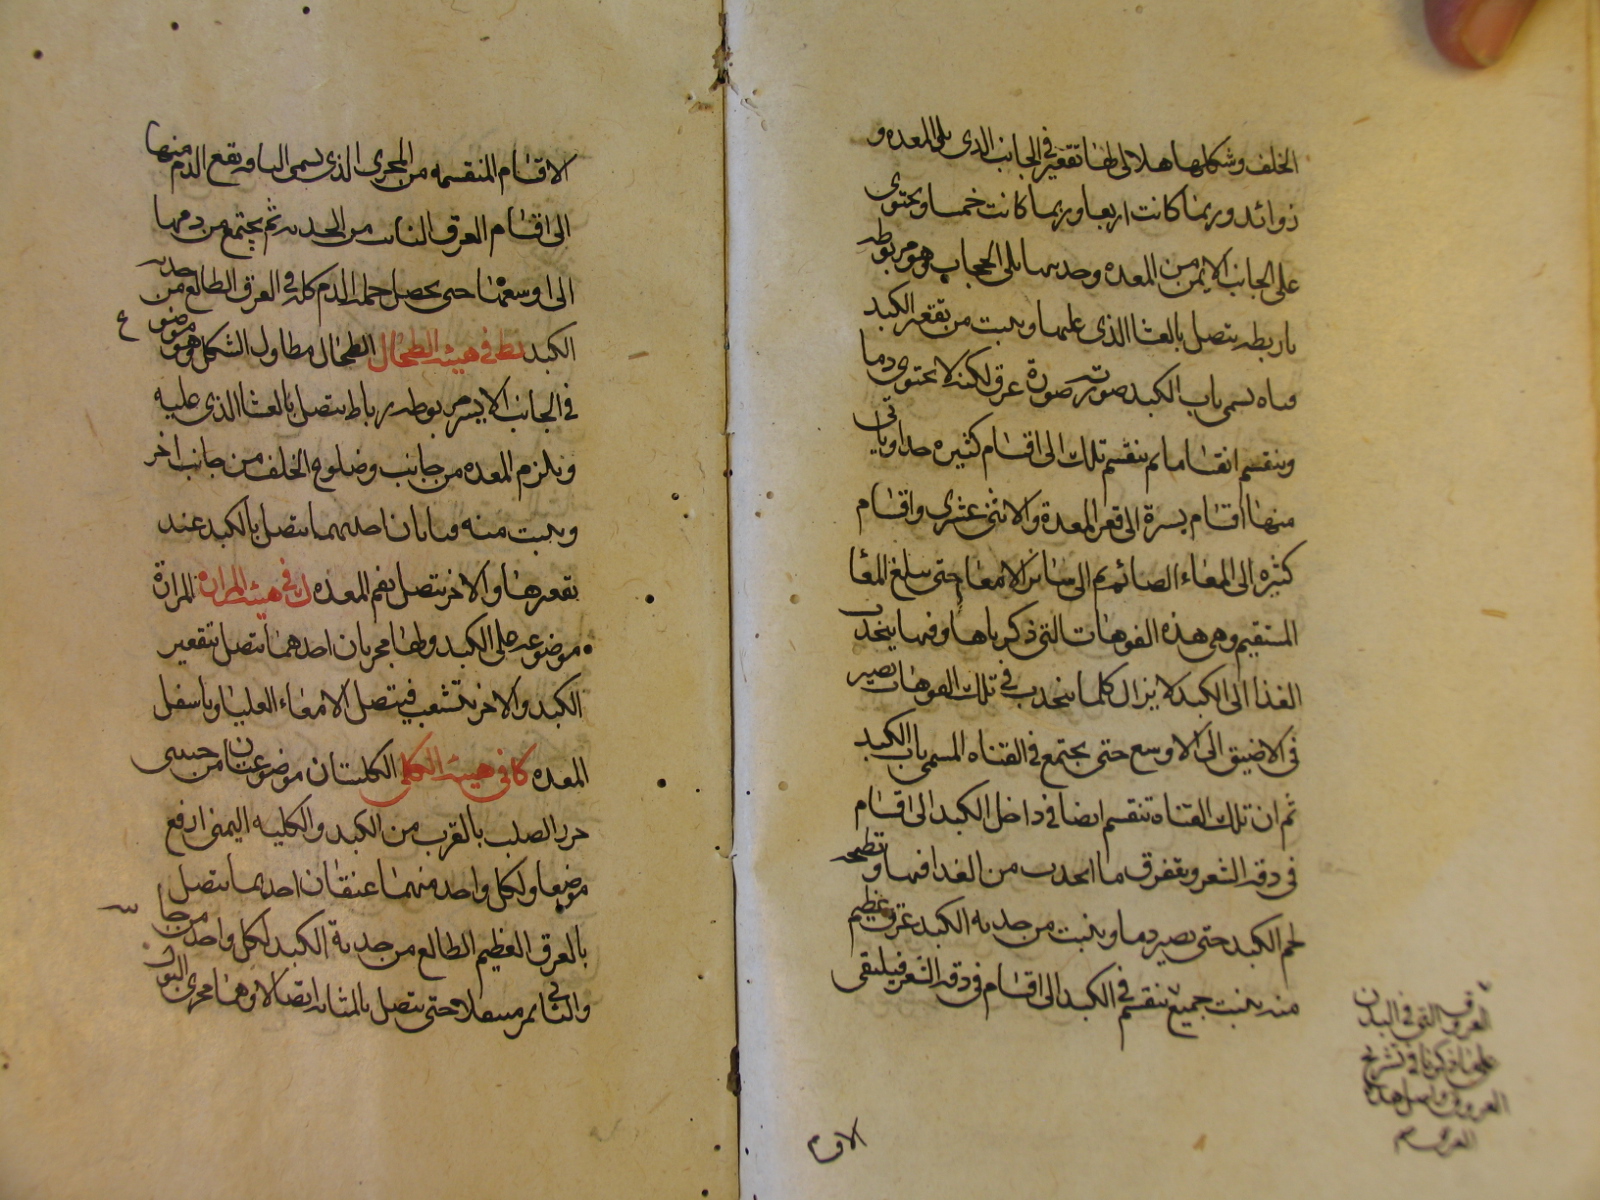 الخلف وشكلها هلالى لها تقعير فى الجانب الذى يلى المعده و
زوائد وربما كانت اربعا وربما كانت خمسا ويحتوى
على الجانب الايمن من المعده وحدبتها يلى الحجاب وهو مربوط
باربطه يتصل بالغشا الذى عليها وينبت من تقعير الكبد
قناه يسمى باب الكبد صورته صورة عرق لكنه لا يحتوى دما
وينقسم انقساما ثم ينقسم تلك الى اقسام كثيره جدا وياتى
منها اقسام يسرة الى قعر المعدة والاثنى عشرى واقسام
كثيره الى المعاء الصائم ثم الى سائر الامعا حتى يبلغ المعا
المستقيم وهى هذه الفوهات التى ذكرناها وفيها ينجذب
الغذا الى الكبد لا يزال كلما ينجذب فى تلك الفوهات يصير
فى الاضيق الى الاوسع حتى يجتمع فى القناه المسمى باب الكبد
ثم ان تلك القناه تنقسم ايضا فى داخل الكبد الى اقسام
فى دقه الشعر ويتفرق ما انجذب من الغذا فيها و
لحم الكبد حتى يصير دما وينبت من حدبه الكبد عرق عظيم
منه ينبت جميع ينقسم فى الكبد الى اقسام فى دقه الشعر فيلتقى
العروق التى فى البدن
على ما ذكرنا فى تشريح
العروق هذا
العرق
الاقسام
الاقسام المنقسمه من المجرى الذى يسمى الباب ويقع الدم منها
الى اقسام العرق النابت من الحدبه ثم يجتمع من دقيقها
الى اوسعها حتى يحصل جمله الدم كله فى العرق الطالع من حدبه
الكبد ط فى هيئه الطحال الطحال مطاول الشكل وهو موضوع
فى الجانب الايسر مربوط برباط يتصل بالغشا الذى عليه
ويلزم المعده من جانب وضلوع الخلف من جانب اخر
وينبت منه قناتان احدهما يتصل بالكبد عند
تقعيرها والاخر يتصل بفم المعده فى هيئه المراره المرارة
موضوعه على الكبد ولها مجريان احدهما يتصل بتقعير
الكبد والاخر يتشعب فيتصل الامعاء العليا وباسفل
المعده كا فى هيئه الكلى الكليتان موضوعتان من جنبى
خرز الصلب بالقرب من الكبد والكليه اليمنى ارفع
موضعا ولكل واحد منهما عنقان احدهما يتصل
بالعرق العظيم الطالع من حدبة الكبد لكل واحد من جا
والثانى يمر متسفلا حتى يتصل بالمثانه اتصالا وهما مجرى البول